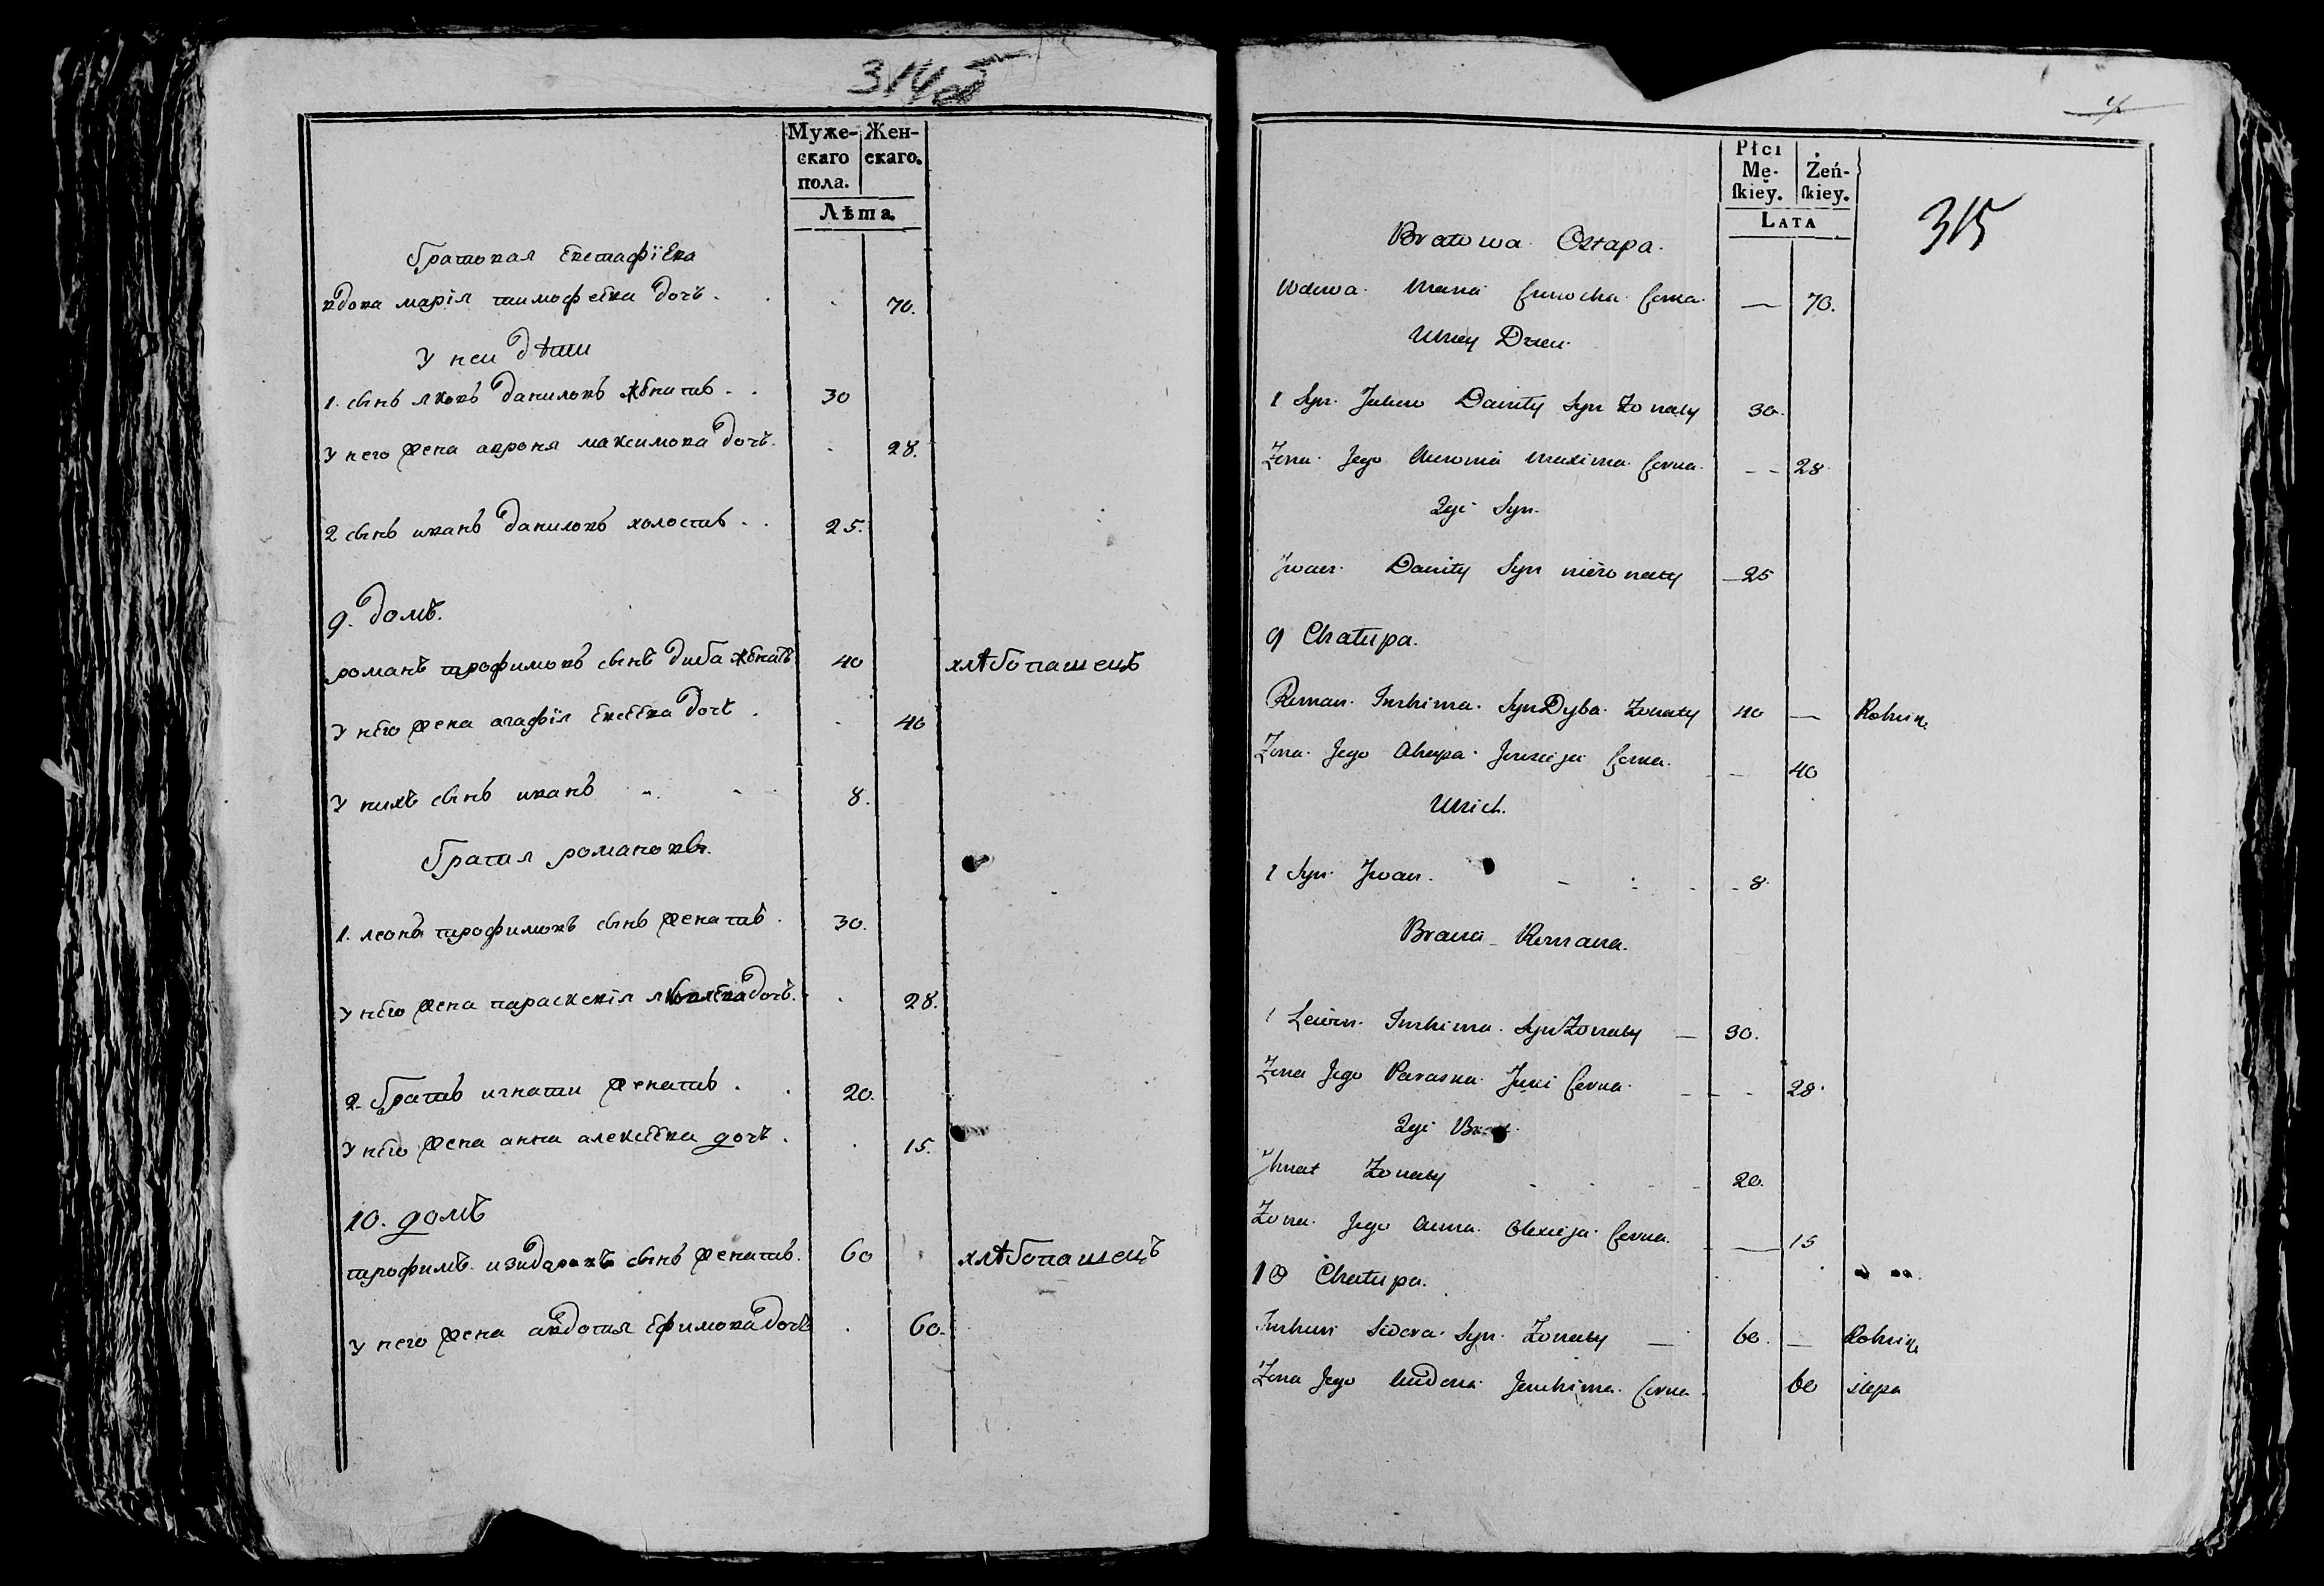 314 об
Муже- Жен-
скаго скаго.
пола.
Лѣта.
братовая Евстафіева
вдова марія тимофеева дочь. 70.
У неи дѣти
1. сынъ яковъ даниловъ женатъ 30
У него жена авроня максимова дочь. 28.
2 сынъ иванъ даниловъ холостъ 25.
9. домъ.
романъ трофимовъ сынъ диба женатъ 40 хлѣбопашецъ
У него жена агафія Евсеева дочь 40
У нихъ сынъ иванъ 8.
братья романовы.
1. леонъ трофимовъ сынъ женатъ 30.
У него жена параскевія дочь. 28.
2. братъ игнатии женатъ 20.
У него жена анна алексеева дочь. 15.
10. домъ
трофимъ изидоровъ сынъ женатъ. 60 хлѣбопашецъ
У него жена авдотия Ефимова дочь 60.
4
Płci
Mę- Żeń-
ſkiey. ſkiey.
LATA
315
Bratowa Ostapa.
Wdowa Maria Corka 70.
U niey Dzieci
1 Syn Jakow Daniły Syn Żonaty 30.
Żona Jego Awronia Maxima Corka 28
2gi Syn.
Jwan Daniły Syn nieżonaty 25
9 Chałupa.
Roman Trochima Syn Dyba Żonaty 40 — Rolnik
Żona Jego Ahapa Corka 40
U nich.
1 Syn Jwan 8.
Bracia Romana.
1 Lewon Trochima Syn Żonaty 30.
Żona Jego Paraska Corka 28.
2gi Brat.
Jhnat Żonaty 20.
Żona Jego Anna Olexieja Corka 15
10 Chałupa.
Trochim Sidora Syn Żonaty 60. — Rolnik
Żona Jego Jewchima Corka 60 slepa